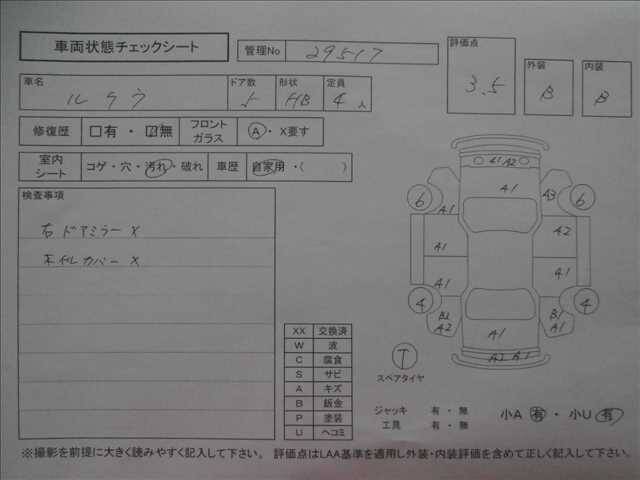 車両状態チェックシート
管理No 29517
評価点 3.5
外装 B
内装 B
車名 ルクラ
ドア数 5
形状 HB
定員 4人
修復歴 □有・☑無
フロントガラス A・X要す
室内シート コゲ・穴・汚れ・破れ
車歴 自家用・( )
検査事項
右ドアミラー X
ホイルカバー X
A1 A2
A1
6 6
A1 A3
A1 A2
A1 A1
4 4
B2 A2
B1 A1
A1
A2 A1
T
スペアタイヤ
XX 交換済
W 波
C 腐食
S サビ
A キズ
B 鈑金
P 塗装
U ヘコミ
ジャッキ 有・無
工具 有・無
小A 有・小U 有
※撮影を前提に大きく読みやすく記入して下さい。 評価点はLAA基準を適用し外装・内装評価を含めて正しく記入して下さい。